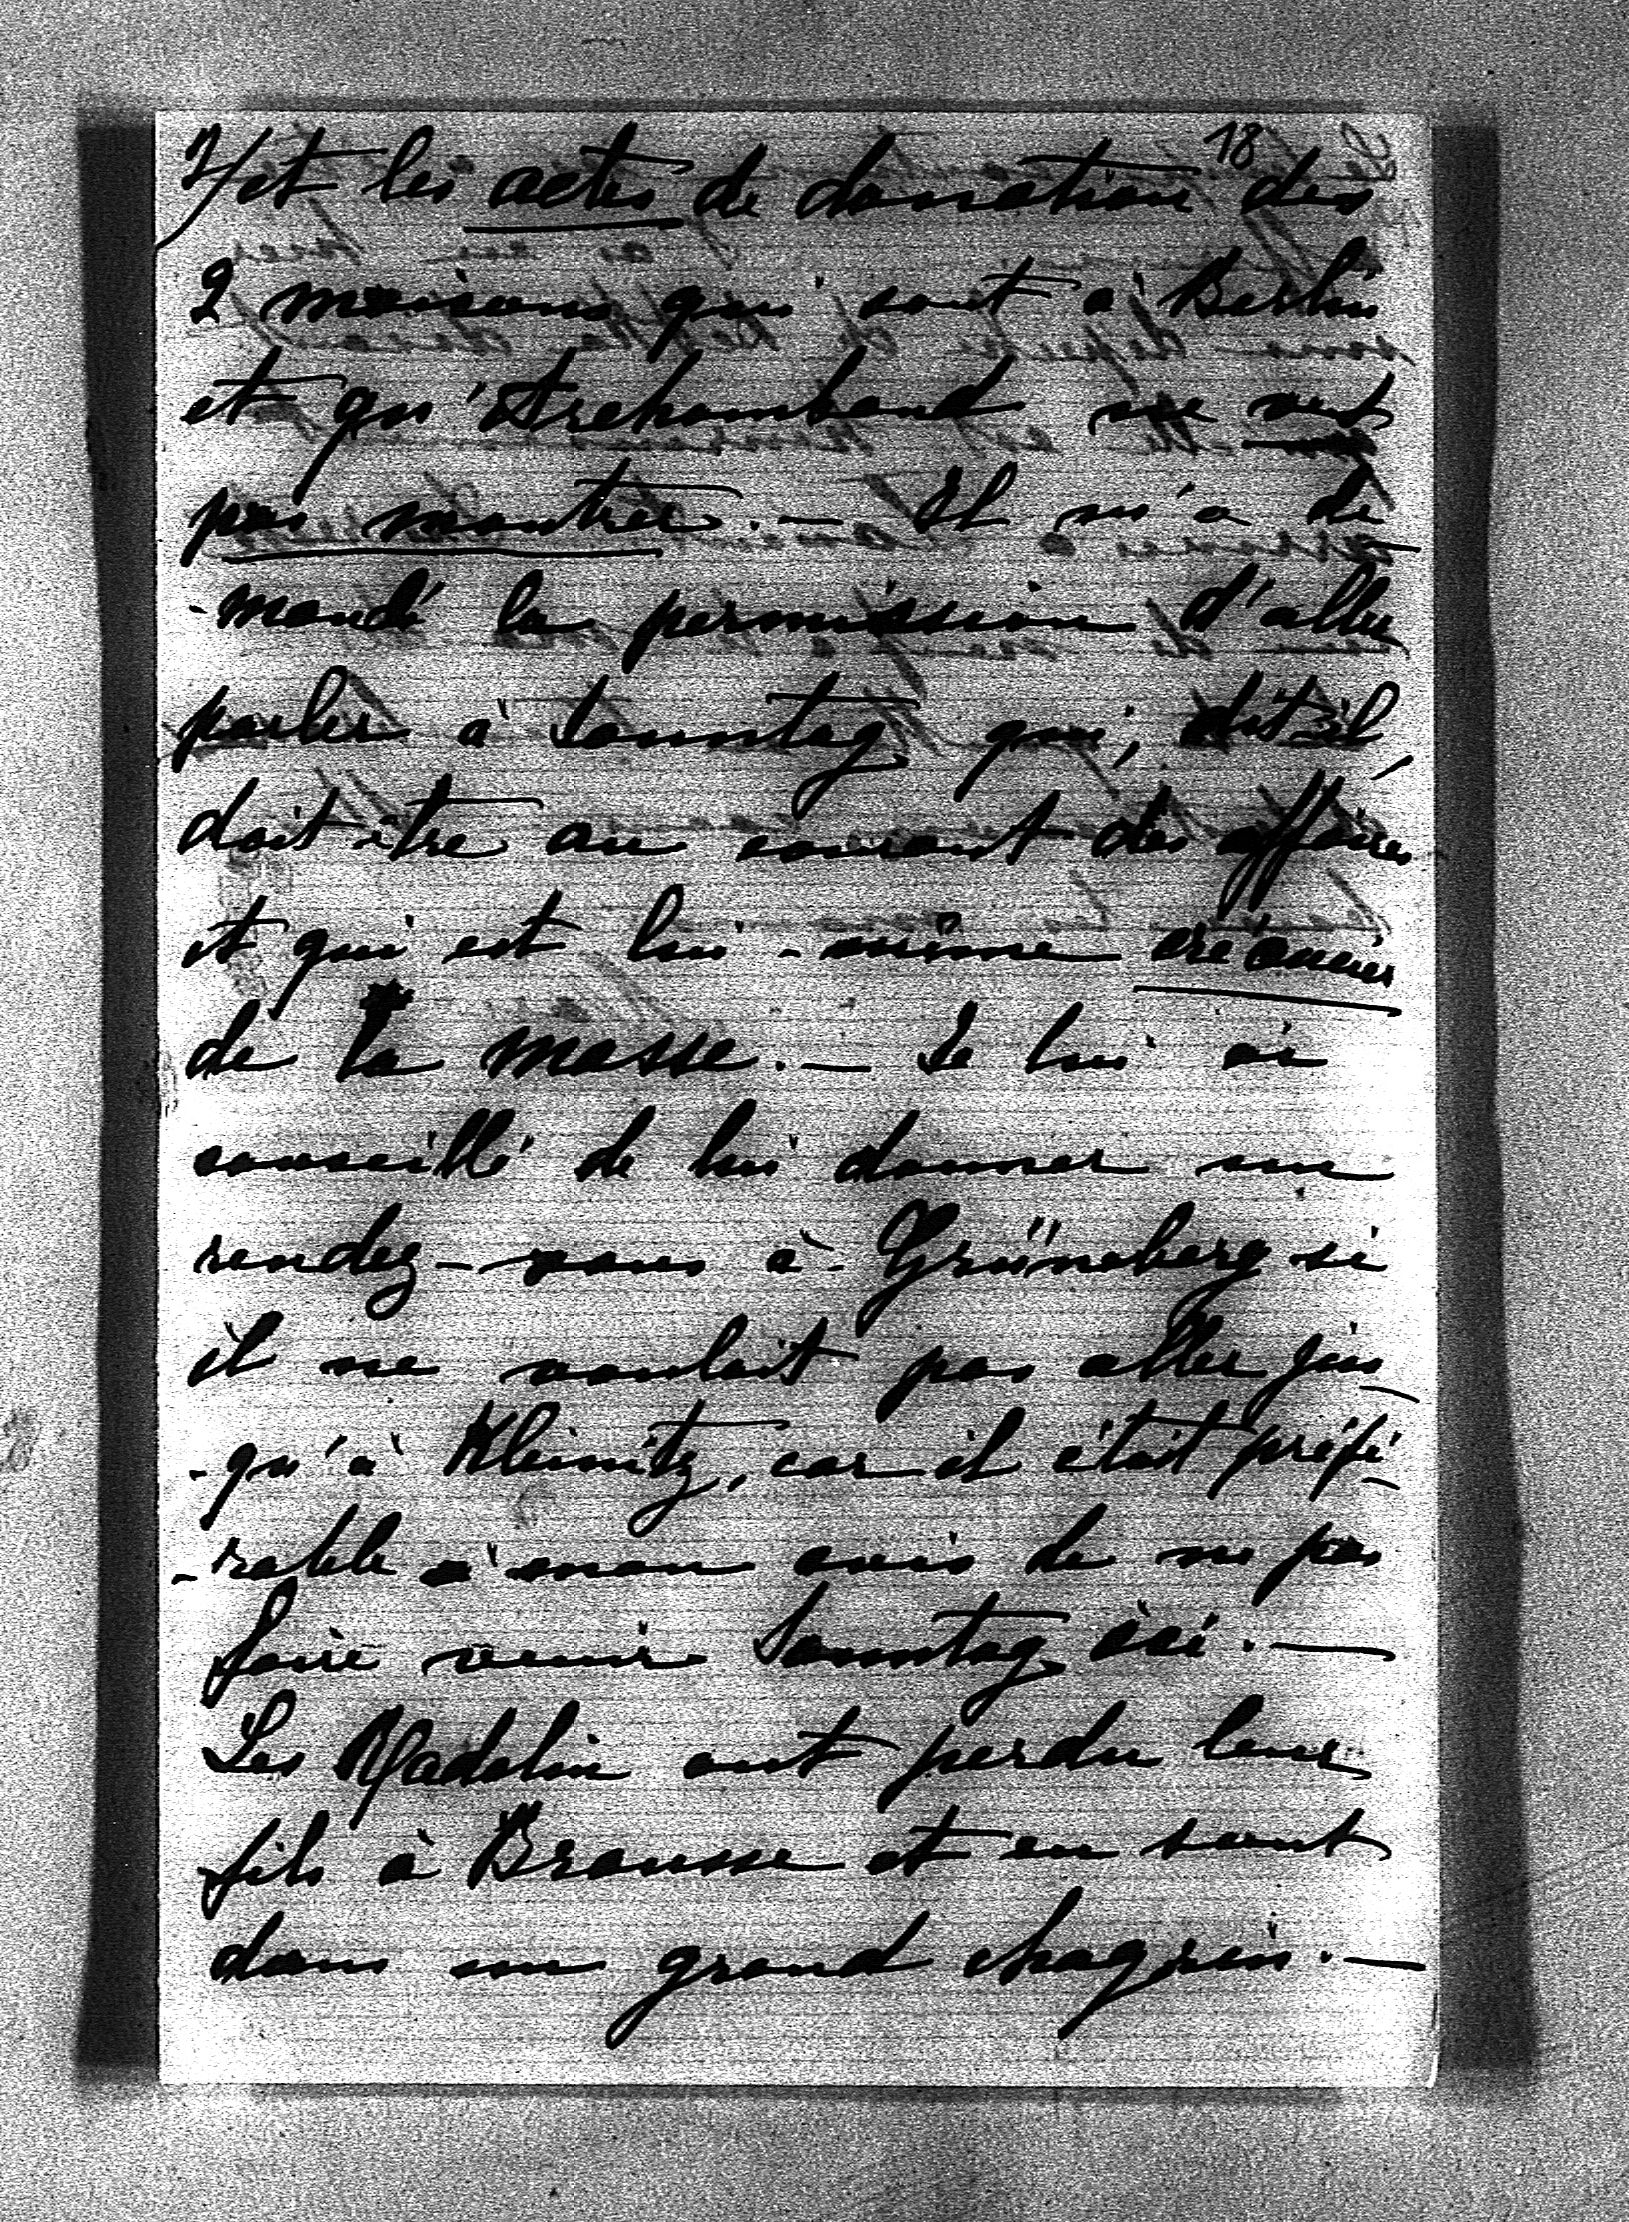 18
2/ et les actes de donation des
2 maisons qui sont à Berlin
et qu'Archambaud ne veut
pas montrer. — Il m'a de-
-mandé la permission d'aller
parler à Sonntag qui, dit-il,
doit être au courant des affaires
et qui est lui-même créancier
de la masse. — Je lui ai
conseillé de lui donner un
rendez-vous à Grüneberg si
il ne voulait pas aller jus-
-qu'à Kleinitz, car il était préfé-
-rable à mon avis de ne pas
faire venir Sonntag ici. —
Les Madelin ont perdu leur
fils à Brousse et en sont
dans un grand chagrin. —